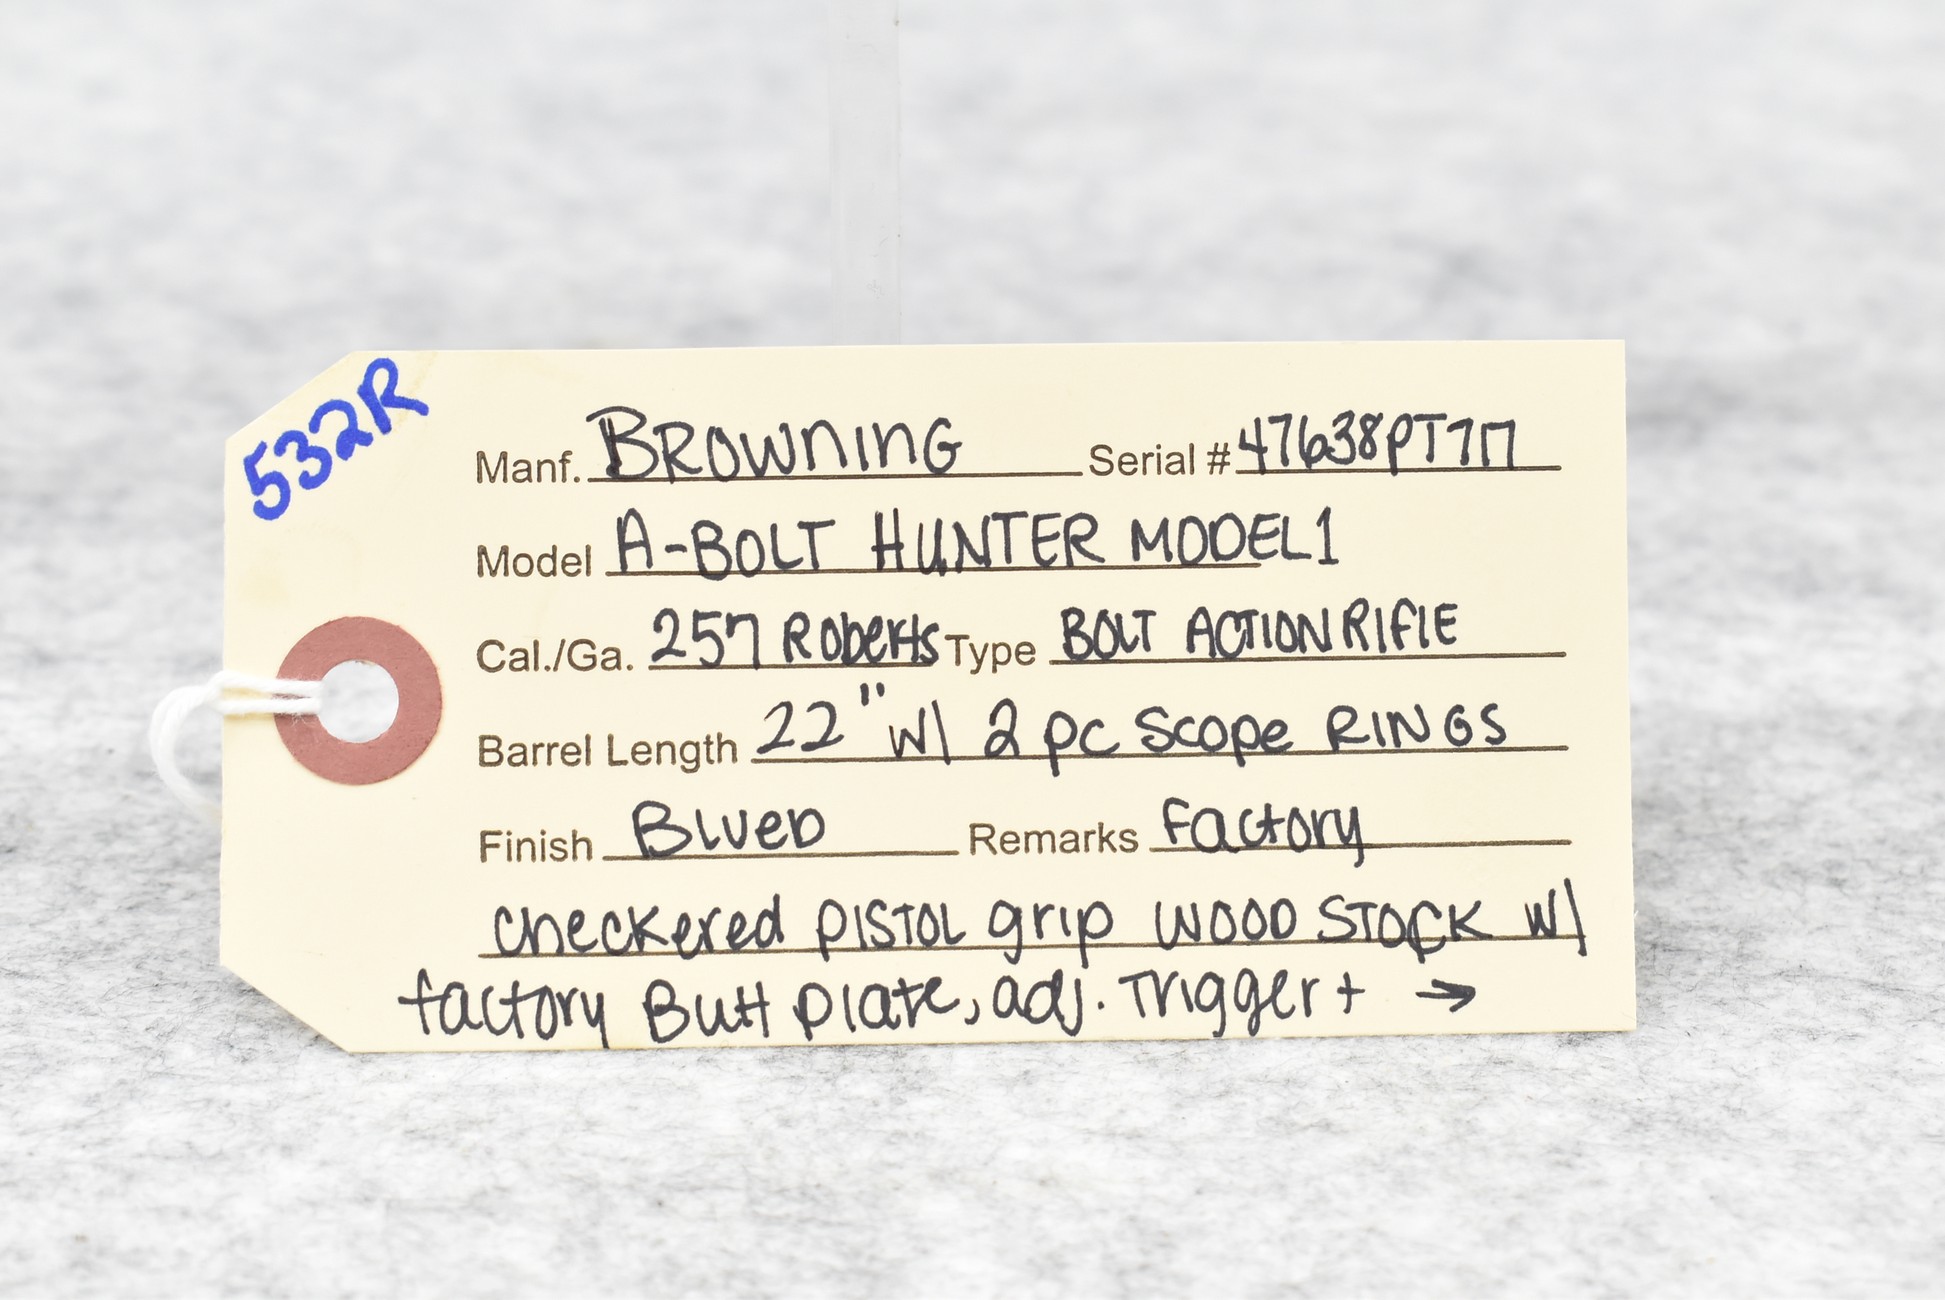 532R
Manf. BROWNING Serial # 47638PT717
Model A-BOLT HUNTER MODEL 1
Cal./Ga. 257 Roberts Type BOLT ACTION RIFlE
Barrel Length 22" w/ 2 pc Scope RINGS
Finish Blued Remarks factory
checkered PISTOL grip WOOD STOCK w/
factory Butt plate, adj. Trigger + →